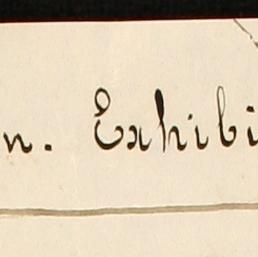 n. Exhibi